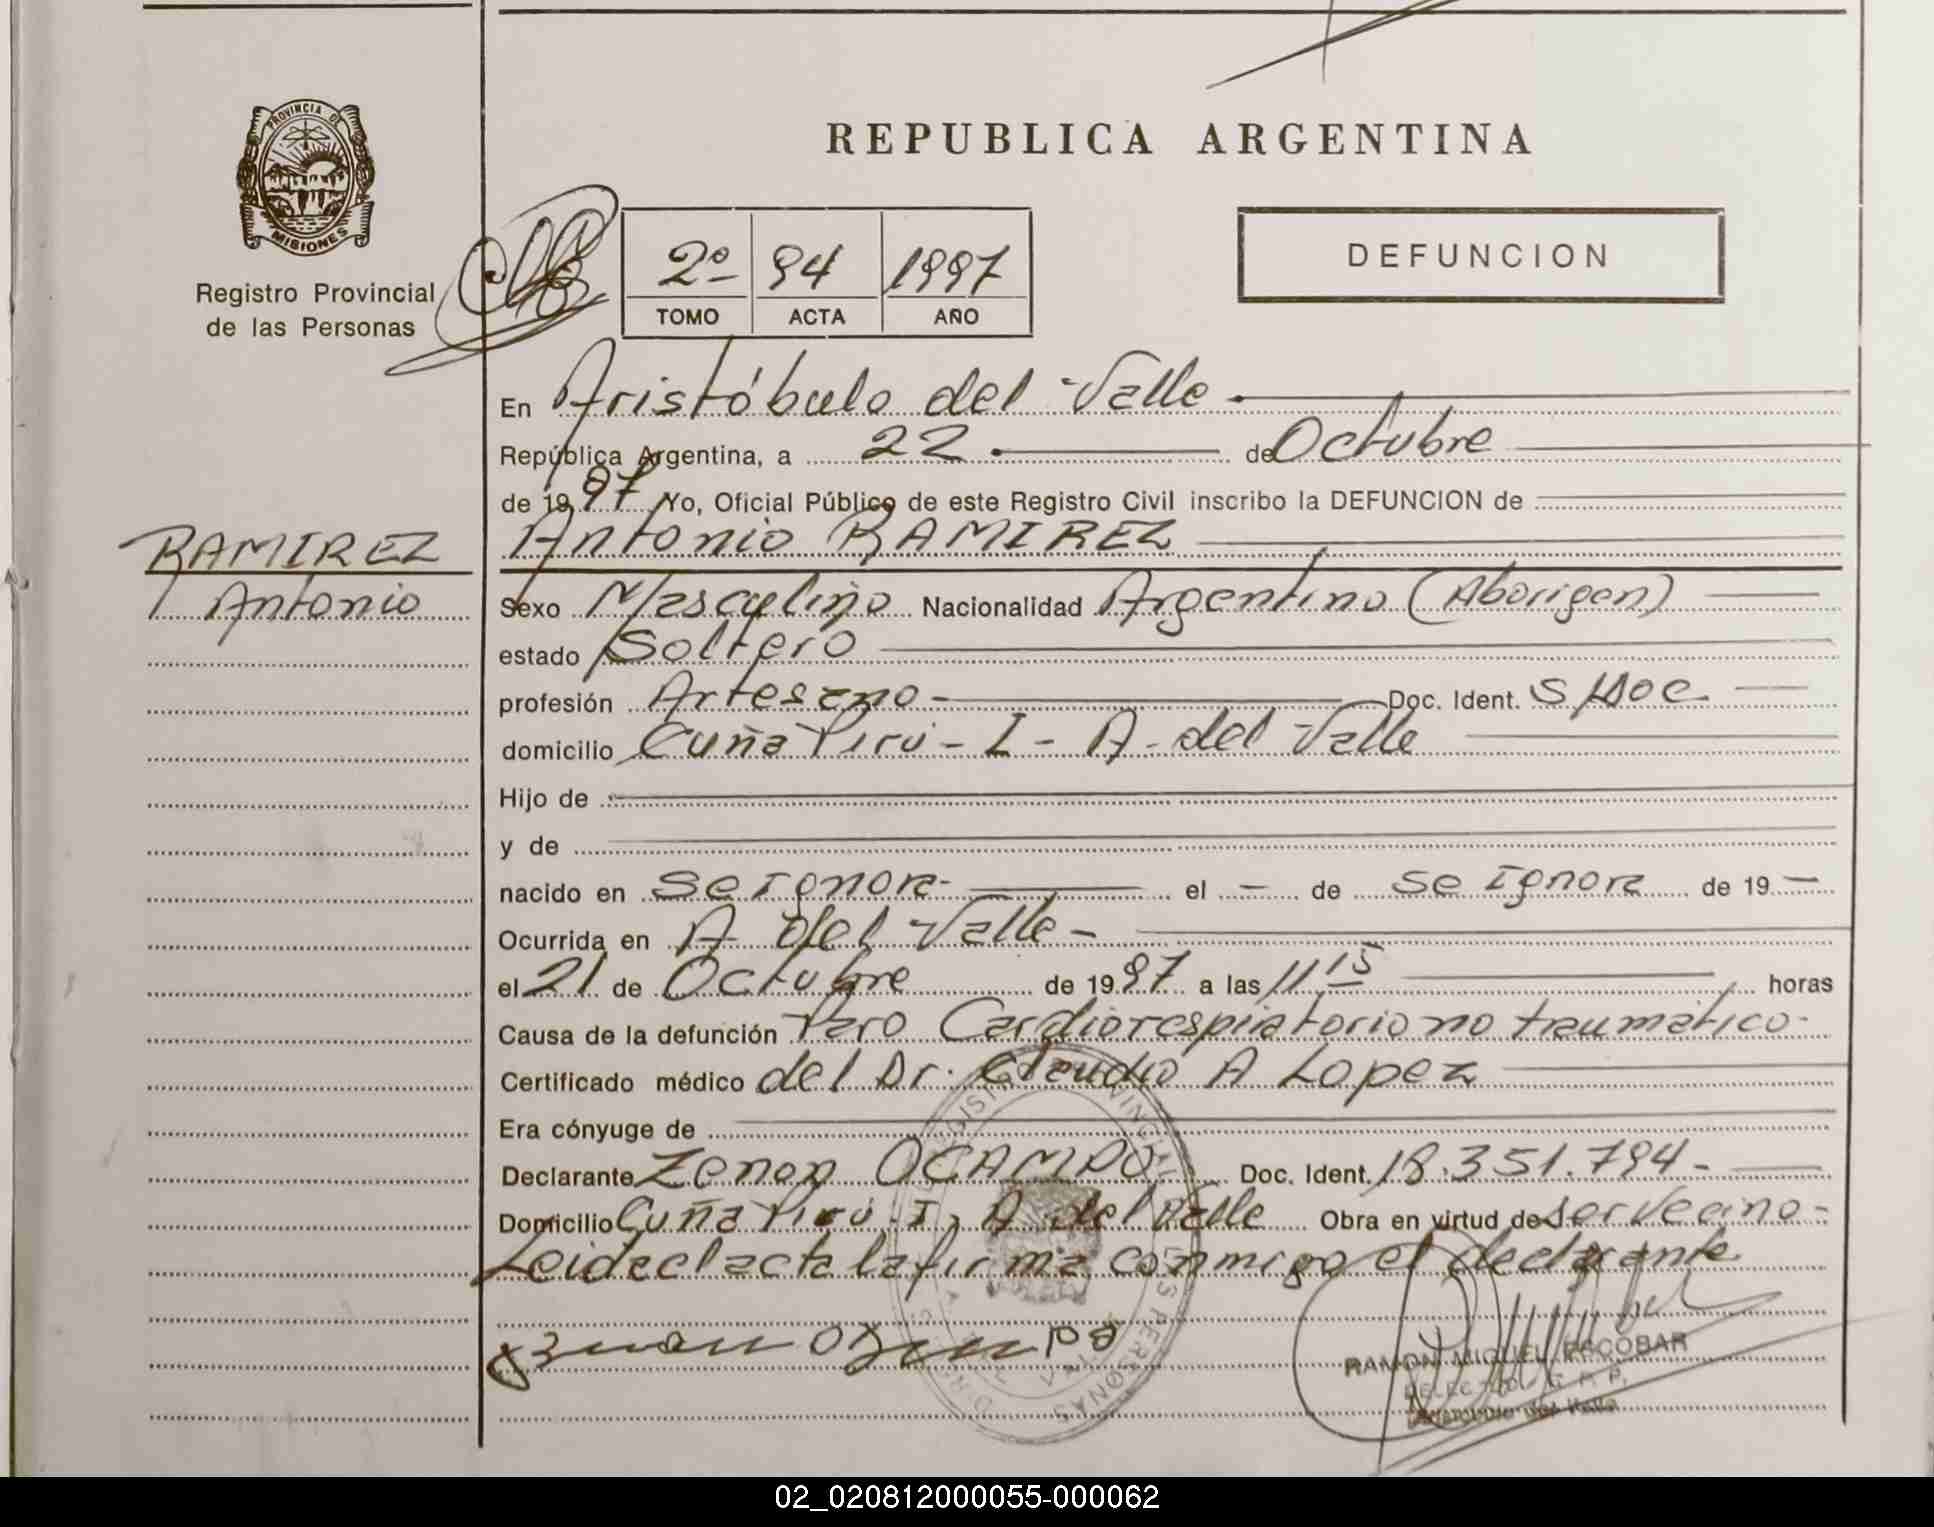 PROVINCIA DE
MISIONES
Registro Provincial
de las Personas
REPUBLICA ARGENTINA
DEFUNCION
2º 94 1997
TOMO ACTA AÑO
En Aristóbulo del Valle
República Argentina, a 22 de Octubre
de 1997 Yo, Oficial Público de este Registro Civil inscribo la DEFUNCION de
RAMIREZ
Antonio
Antonio RAMIREZ
Sexo Masculino Nacionalidad Argentino (Aborigen)
estado Soltero
profesión Artesano - Doc. Ident. S/Doc.
domicilio Cuña Pirú - I - A. del Valle
Hijo de
y de
nacido en Se Ignora - el - de Se Ignora de 19 -
Ocurrida en A del Valle -
el 21 de Octubre de 1997 a las 11 15 horas
Causa de la defunción Paro Cardiorespiratorio no traumático-
Certificado médico del Dr. Claudio A Lopez
Era cónyuge de
Declarante Zenon OCAMPO Doc. Ident. 18.351.794-
Domicilio Cuña Pirú - I, A del Valle Obra en virtud de ser vecino-
Leida el acta la firma conmigo el declarante
RAMON MIGUEL ESCOBAR
Aristobulo del Valle
02_020812000055-000062